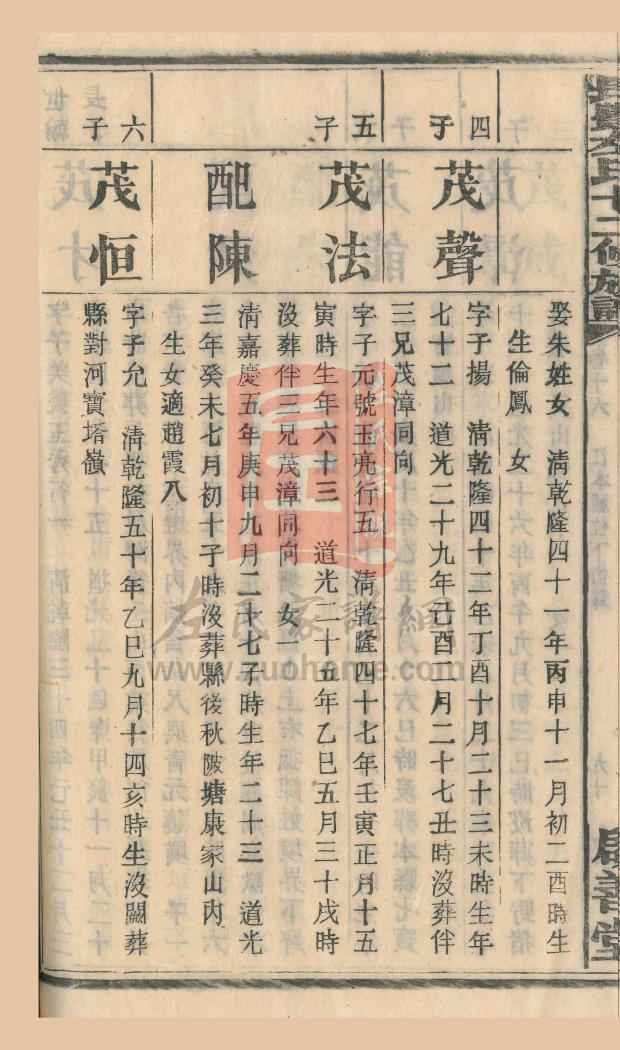 娶朱姓女　清乾隆四十一年丙申十一月初二酉時生
生倫鳳　女一
四子
茂聲
字子揚　清乾隆四十二年丁酉十月二十三未時生年
七十二　道光二十九年己酉二月二十七丑時沒葬伴
三兄茂漳同向
五子
茂法
字子元號玉亮行五　清乾隆四十七年壬寅正月十五
寅時生年六十三　道光二十五年乙巳五月三十戌時
沒葬伴三兄茂漳同向　女一
配陳
清嘉慶五年庚申九月二十七子時生年二十三　道光
三年癸未七月初十子時沒葬縣後秋陂塘康家山內
生女適趙霞八
六子
茂恒
字子允　清乾隆五十年乙巳九月十四亥時生沒闕葬
縣對河寶塔嶺
左氏十二修族譜
善堂
左氏家譜網
www.zuohome.com